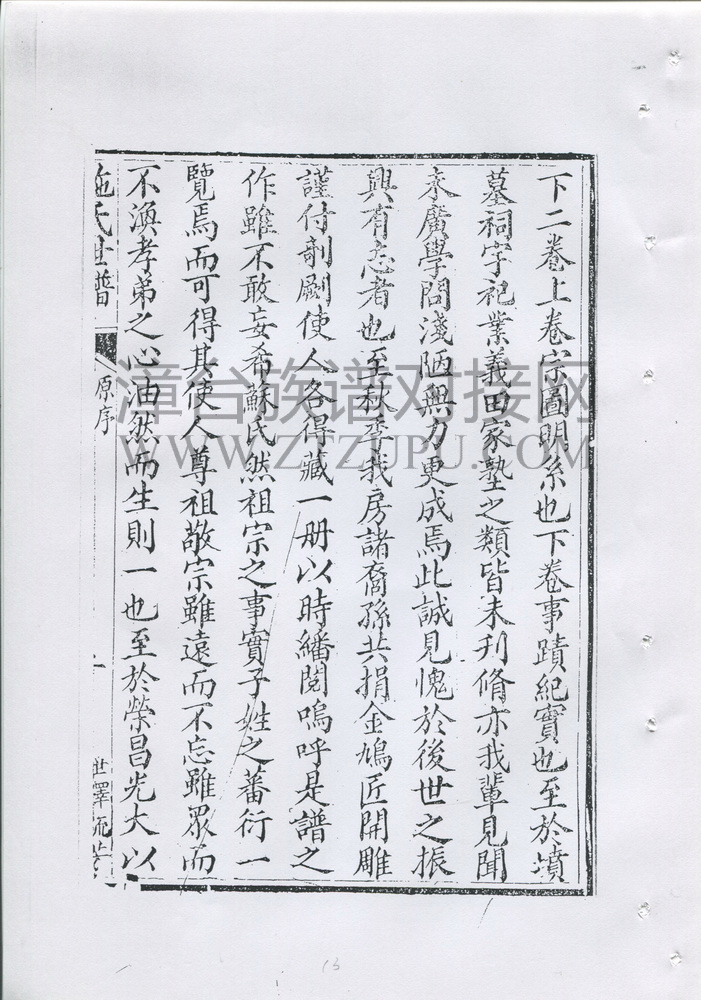 下二卷上卷宗圖明系也下卷事蹟紀實也至於墳
墓祠宇祀業義田家塾之類皆未刋脩亦我輩見聞
未廣學問淺陋無力更成焉此誠見愧於後世之振
興有志者也至秋季我房諸裔孫共捐金鳩匠開雕
謹付剞劂使人各得藏一册以時繙閱嗚呼是譜之
作雖不敢妄希蘇氏然祖宗之事實子姓之蕃衍一
覽焉而可得其使人尊祖敬宗雖遠而不忘雖眾而
不渙孝弟之心油然而生則一也至於榮昌光大以
施氏世譜
原序
世澤流芳
漳台族谱对接网
WWW.ZTZUPU.COM
13